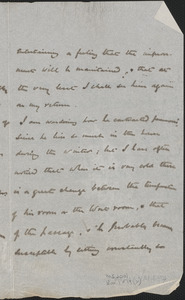 entertaining a feeling that the improve-
ment will be maintained, & that at
the very least I shall see him again
on my return.
I am wondering how he contracted pneumonia
since he is so much in the house
during the winter, but I have often
noted that when it is very cold there
is a great change between the temperature
of his room & the Ward room, & that
of the passage. He probably became
susceptible by sitting constantly so